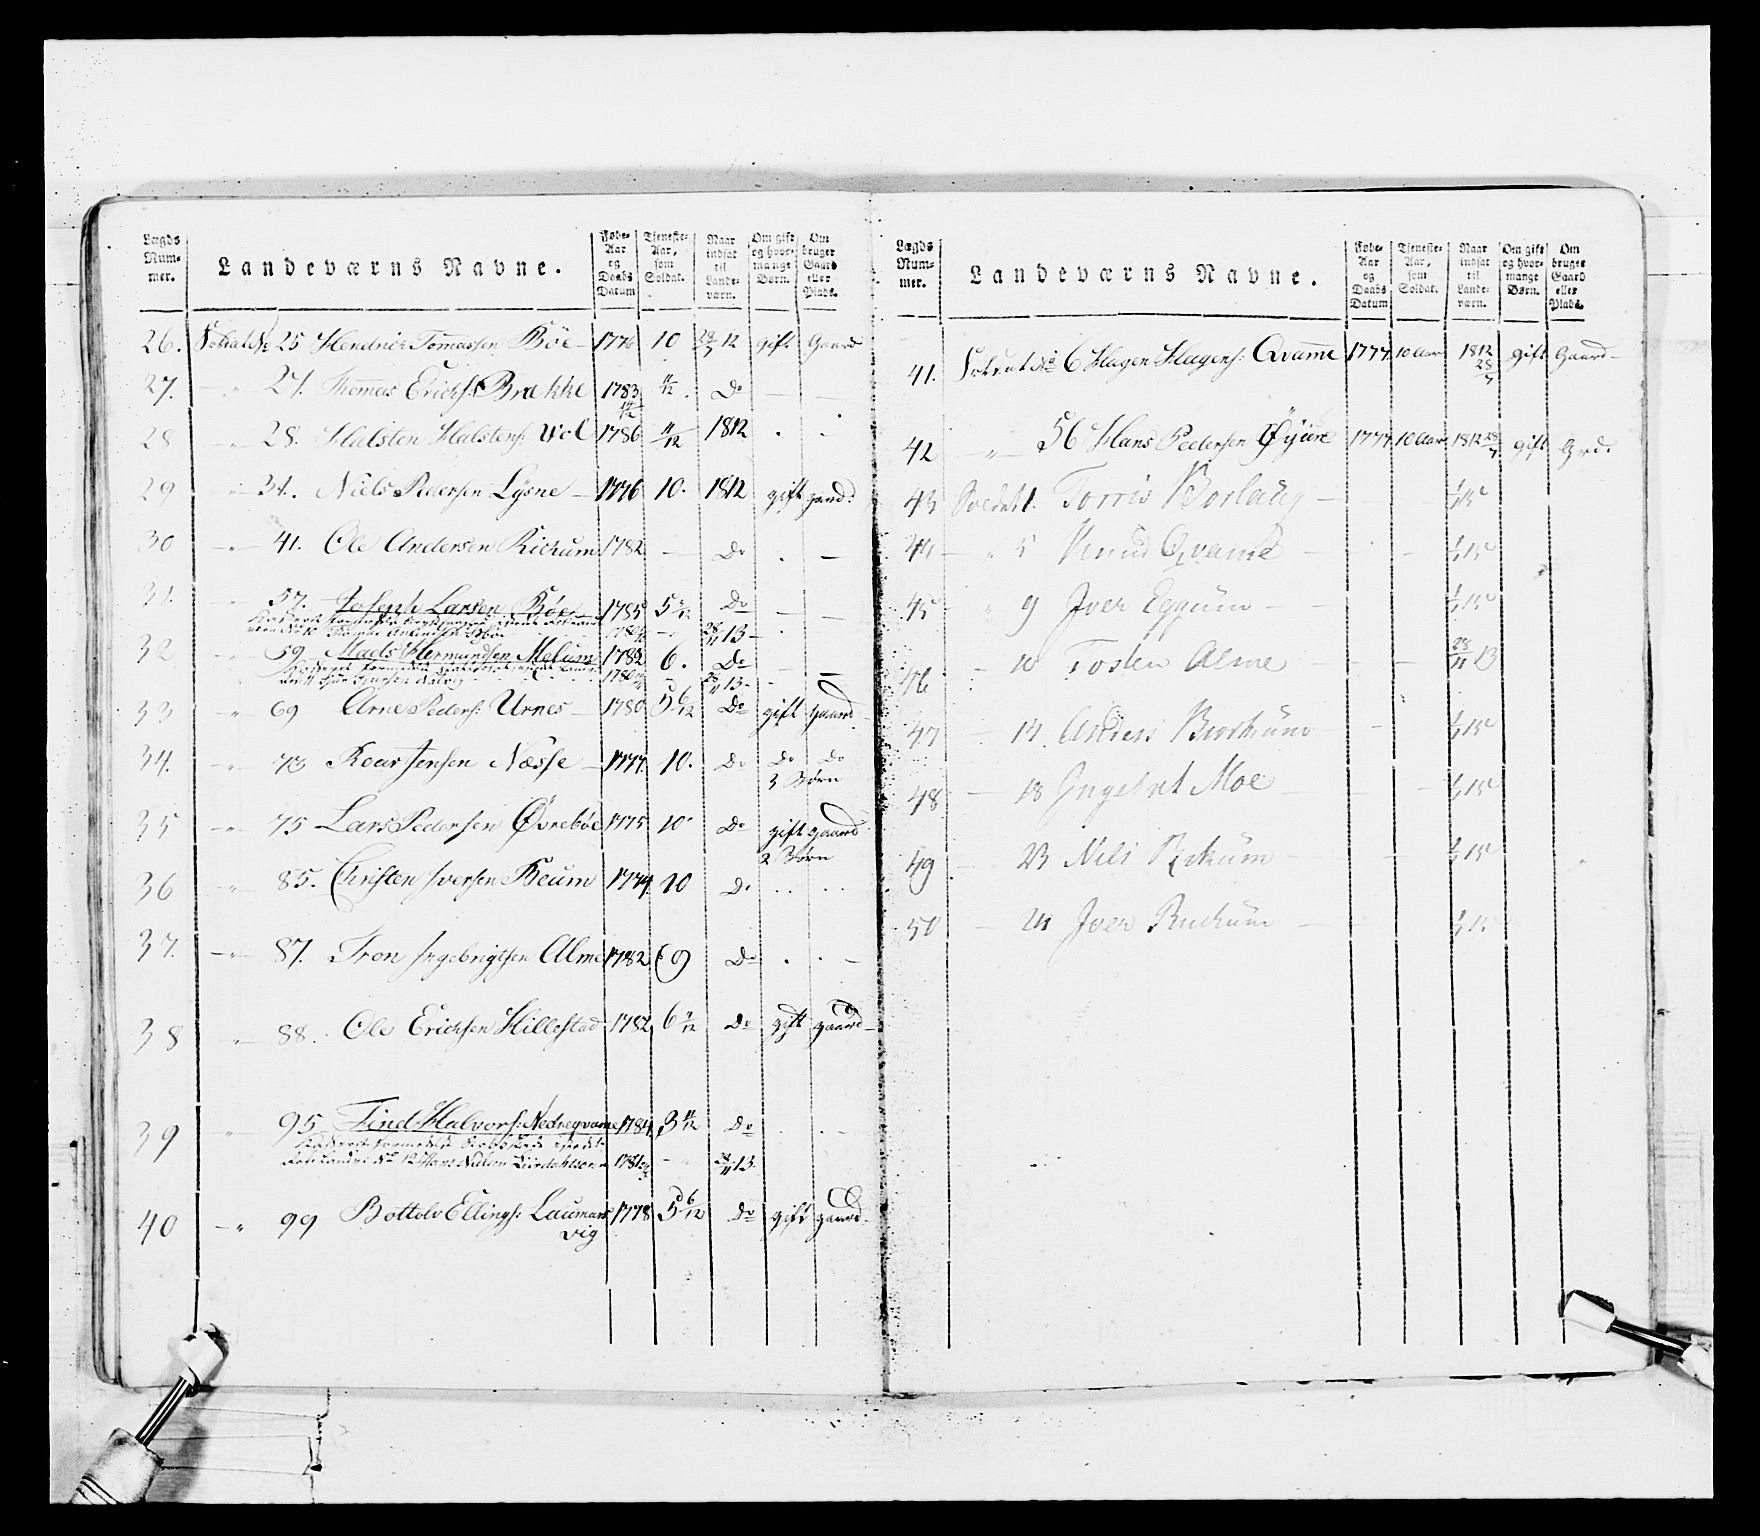 Lægds Num- mer.
Landeværns Navne.
Føde- Aar og Daabs Datum
Tjeneste- Aar, som Soldat.
Naar indsat til Lande- værn.
Om gift og hvor- mange Børn.
Om bruger Gaard eller Plads.
26. Soldat No 25 Hendrich Tomassen Böe 1776 10 28/7 12 gift Gaard
27. " 27. Thomas Erichs: Brække 1783 11/12 Do
28 " 28. Halsten Halstens: Wol 1786 11/12 1812
29 " 34. Niels Pedersen Lysne 1776 10. 1812 gift gaard.
30 " 41. Ole Andersen Rickum 1782 Do
31. " 57. Joseph Larsen Böe 1785 5 Do
28/11 13
32 " 59 Mads Hermundsen Melum 1782 6. Do
28/11 13
33 " 69 Arne Peders: Urnes 1780 5 6/12 Do gift gaard
34. " 73 Roar Jensen Næsse 1777. 10. Do Do Do
3 Børn
35 " 75 Lars Pedersen Övreböe 1775 10 Do gift gaard
2 Børn
36 " 85. Christen Iversen Keum 1777. 10 Do
37. " 87. Tron Ingebrigtsen Alme 1782 69 Do
38 " 88. Ole Erichsen Hillestad 1782 6 Do gift gaard
39 " 95 Find Halvors: Nedreqvame 1784 3 11/12 Do
28/11 13
40 " 99 Bottolv Ellings: Laumans 1778 5 6/12 Do gift gaard
vig
Lægds Num- mer.
Landeværns Navne.
Føde- Aar og Daabs Datum
Tjeneste- Aar, som Soldat.
Naar indsat til Lande- værn.
Om gift og hvor- mange Børn.
Om bruger Gaard eller Plads.
41. Soldat No 6 Hagen Hagens: Qvamme 1777. 10 Aar 1812 28/7 gift Gaard
42 " 56 Hans Pedersen Öyure 1777. 10 Aar 1812 28/7 gift Grd.
43 Soldat 1. Torris Borlaug 1/7 15
44 " 5 Knud Qvame 1/7 15
45 " 9 Iver Eggum 1/7 15
46 10 Tosten Alme 28/11 13
47 14. Anders 1/7 15
48 18 Ingebret Moe 1/7 15
49 23 Nils Rickum 1/7 15
50 24 Iver Rickum 1/7 15